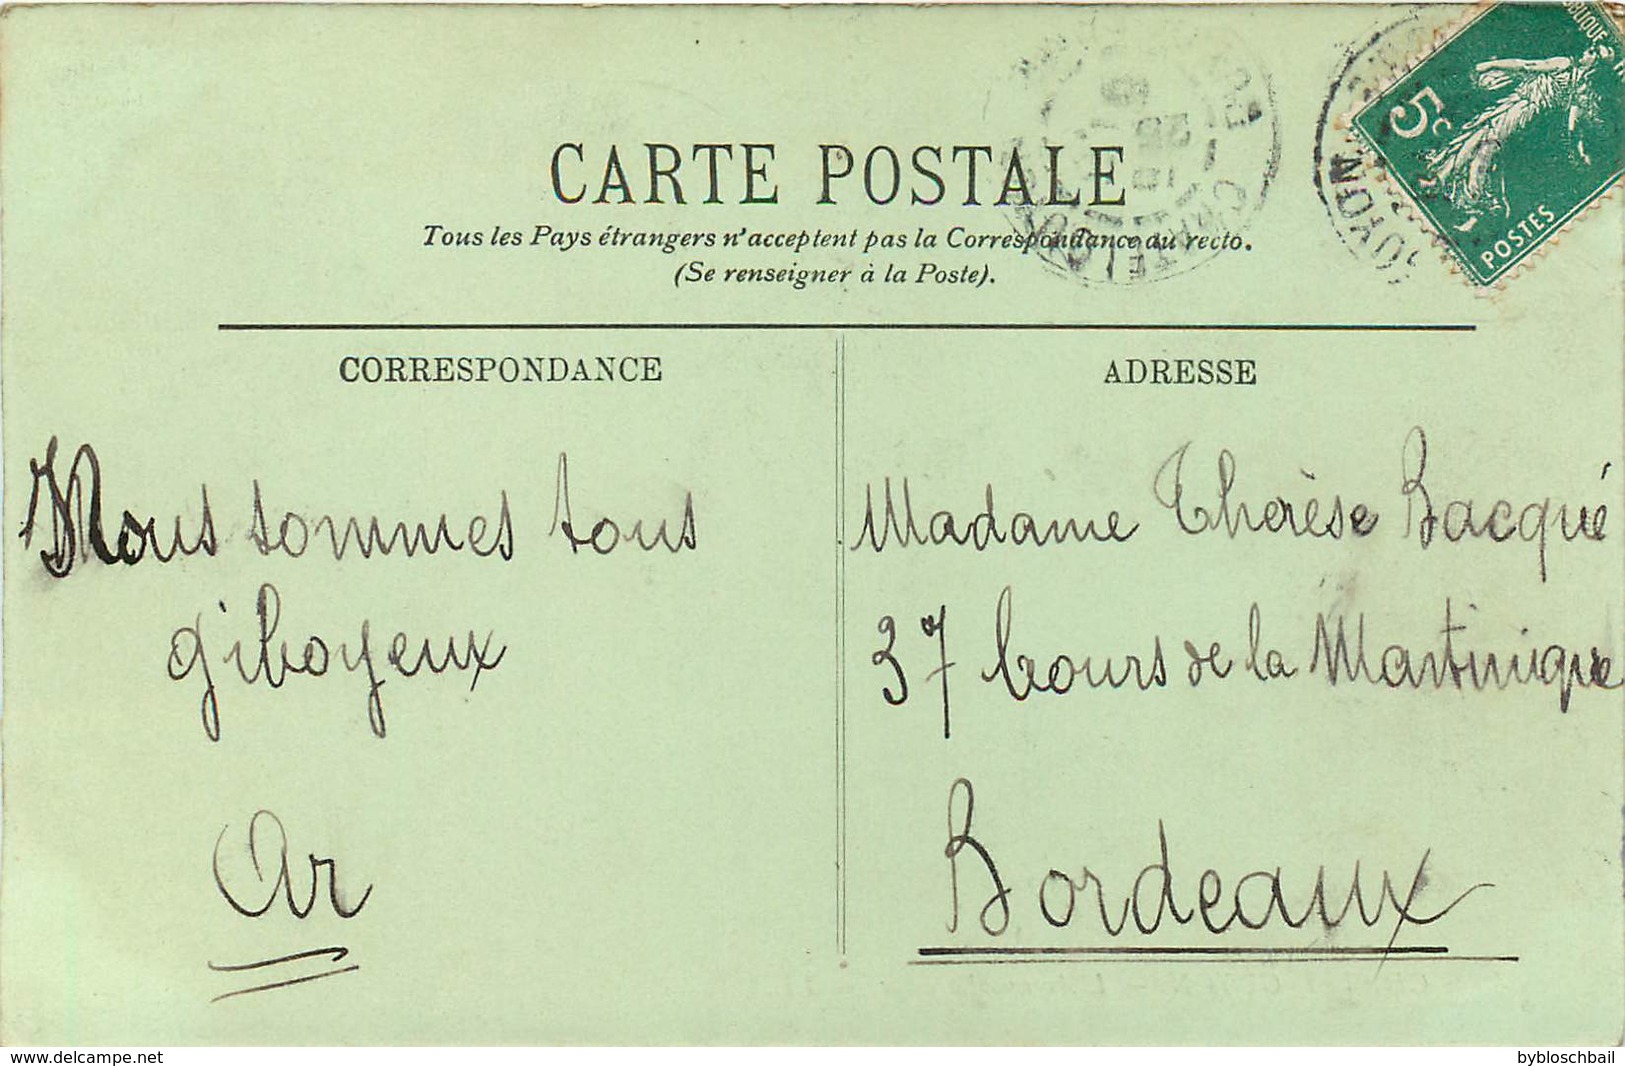 CARTE POSTALE
Tous les Pays étrangers n'acceptent pas la Correspondance au recto.
(Se renseigner à la Poste).
5c
POSTES
CORRESPONDANCE
ADRESSE
Nous sommes tous
giboyeux
Ar
Madame Thérèse Bacqué
37 Cours de la Martinique
Bordeaux
www.delcampe.net
bybloschbail